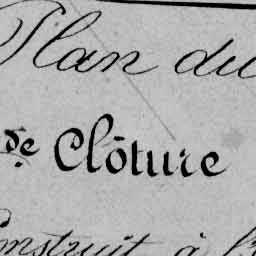 Plan du
de Clôture
Construit à l'